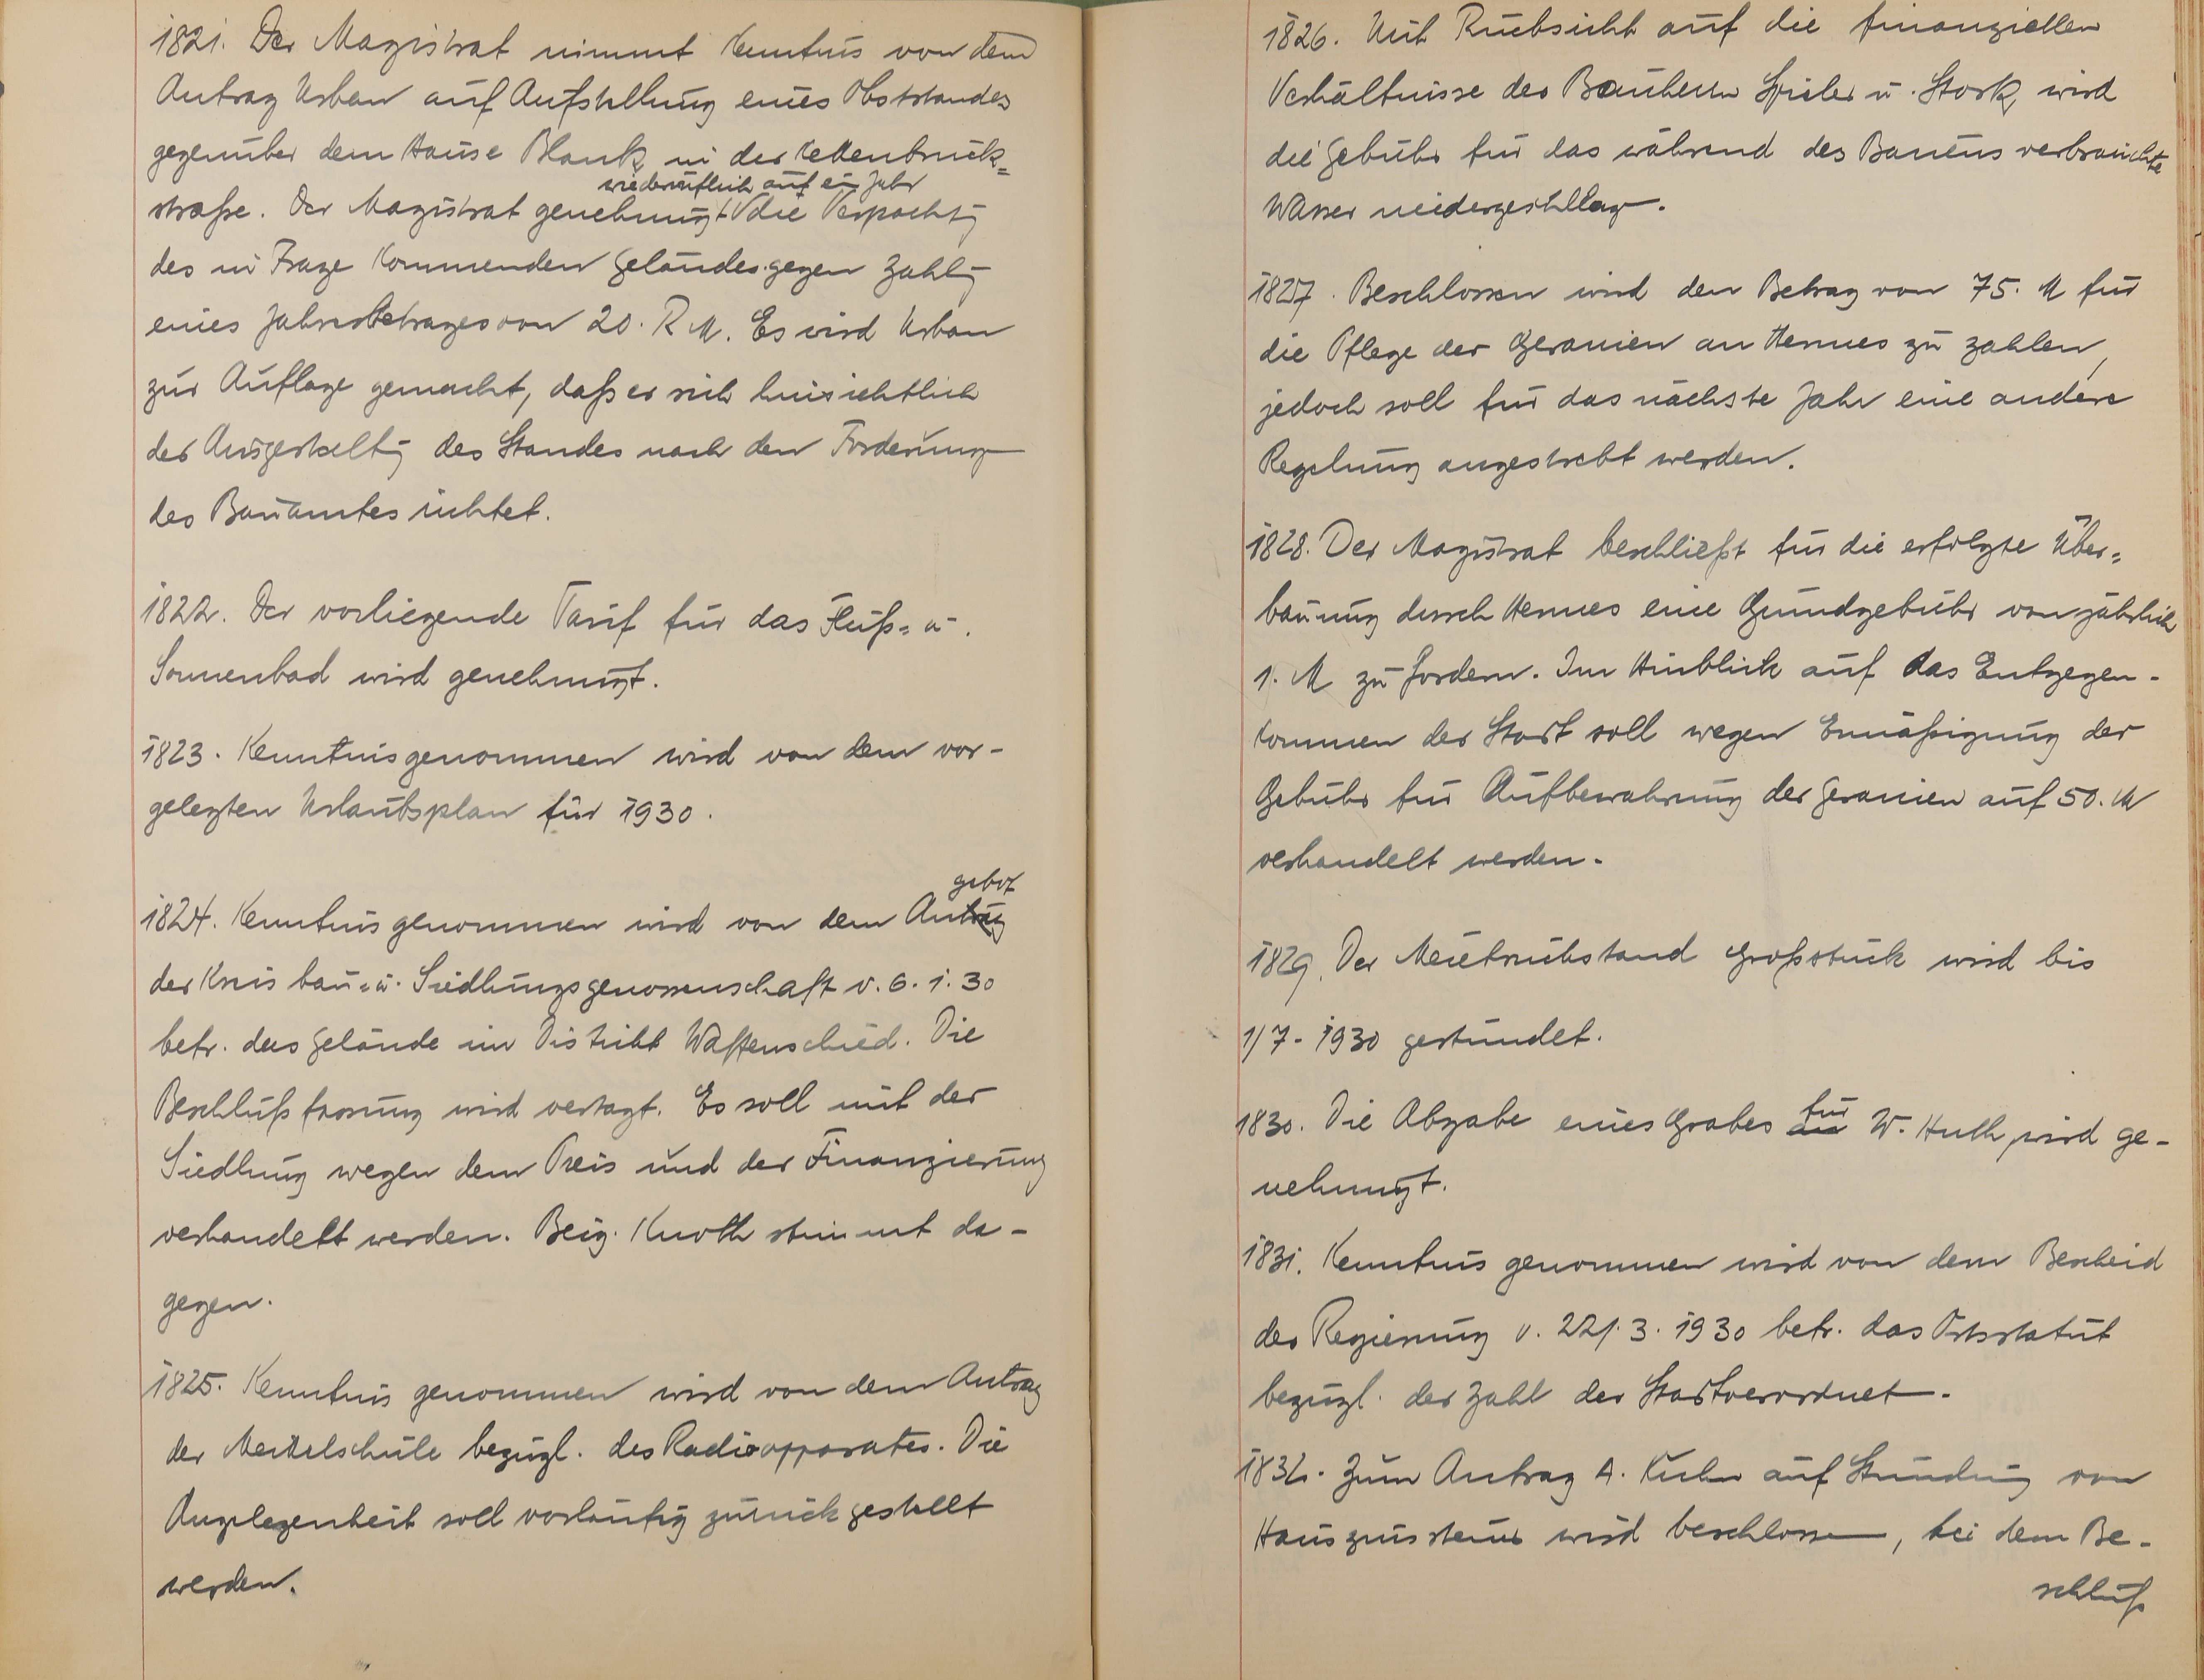 1821. Der Magistrat nimmt Kenntnis von dem
Antrag Urban auf Aufstellung eines Obststandes
gegenüber dem Hause Blank in der Kettenbrück=
wiederruflich auf ein Jahr
straße. Der Magistrat genehmigt die Verpachtg
des in Frage kommenden Geländes gegen Zahlg
eines Jahresbetrages von 20. R M. Es wird Urban
zur Auflage gemacht, daß er sich hinsichtlich
der Ausgestaltg des Standes nach den Forderung
des Bauamtes richtet.
1822. Der vorliegende Tarif für das Fluß= u.
Sonnenbad wird genehmigt.
1823. Kenntnis genommen wird von dem vor-
gelegten Urlaubsplan für 1930.
gebot
1824. Kenntnis genommen wird von dem Antrag
der Kreisbau= u. Siedlungsgenossenschaft v. 6. 1. 30
betr. das Gelände im Distrikt Waffenschied. Die
Beschlußfassung wird vertagt. Es soll mit der
Siedlung wegen dem Preis und der Finanzierung
verhandelt werden. Beig. Knoth stimmt da-
gegen.
1825. Kenntnis genommen wird von dem Antrag
der Mittelschule bezügl. des Radioapparates. Die
Angelegenheit soll vorläufig zurückgestellt
werden.
1826. Mit Rücksicht auf die finanziellen
Verhältnisse der Bauherrn Spieler u. Stork, wird
die Gebühr für das während des Bauens verbrauchte
Wasser niedergeschlag.
1827. Beschlossen wird den Betrag von 75. M für
die Pflege der Geranien an Hermes zu zahlen,
jedoch soll für das nächste Jahr eine andere
Regelung angestrebt werden.
1828. Der Magistrat beschließt für die erfolgte Über=
bauung durch Hermes eine Grundgebühr von jährlich
1. M zu fordern. Im Hinblick auf das Entgegen-
kommen der Stadt soll wegen Ermäßigung der
Gebühr für Aufbewahrung der Geranien auf 50. M
verhandelt werden.
1829. Der Mietrückstand Großstück wird bis
1/7. 1930 gestundet.
für
1830. Die Abgabe eines Grabes an W. Huth, wird ge-
nehmigt.
1831. Kenntnis genommen wird von dem Bescheid
der Regierung v. 221. 3. 1930 betr. das Ortsstatut
bezügl. der Zahl der Stadtverordnet.
1832. Zum Antrag A. Kuhn auf Stundung von
Hauszinssteuer wird beschlossen, bei dem Be-
schluß